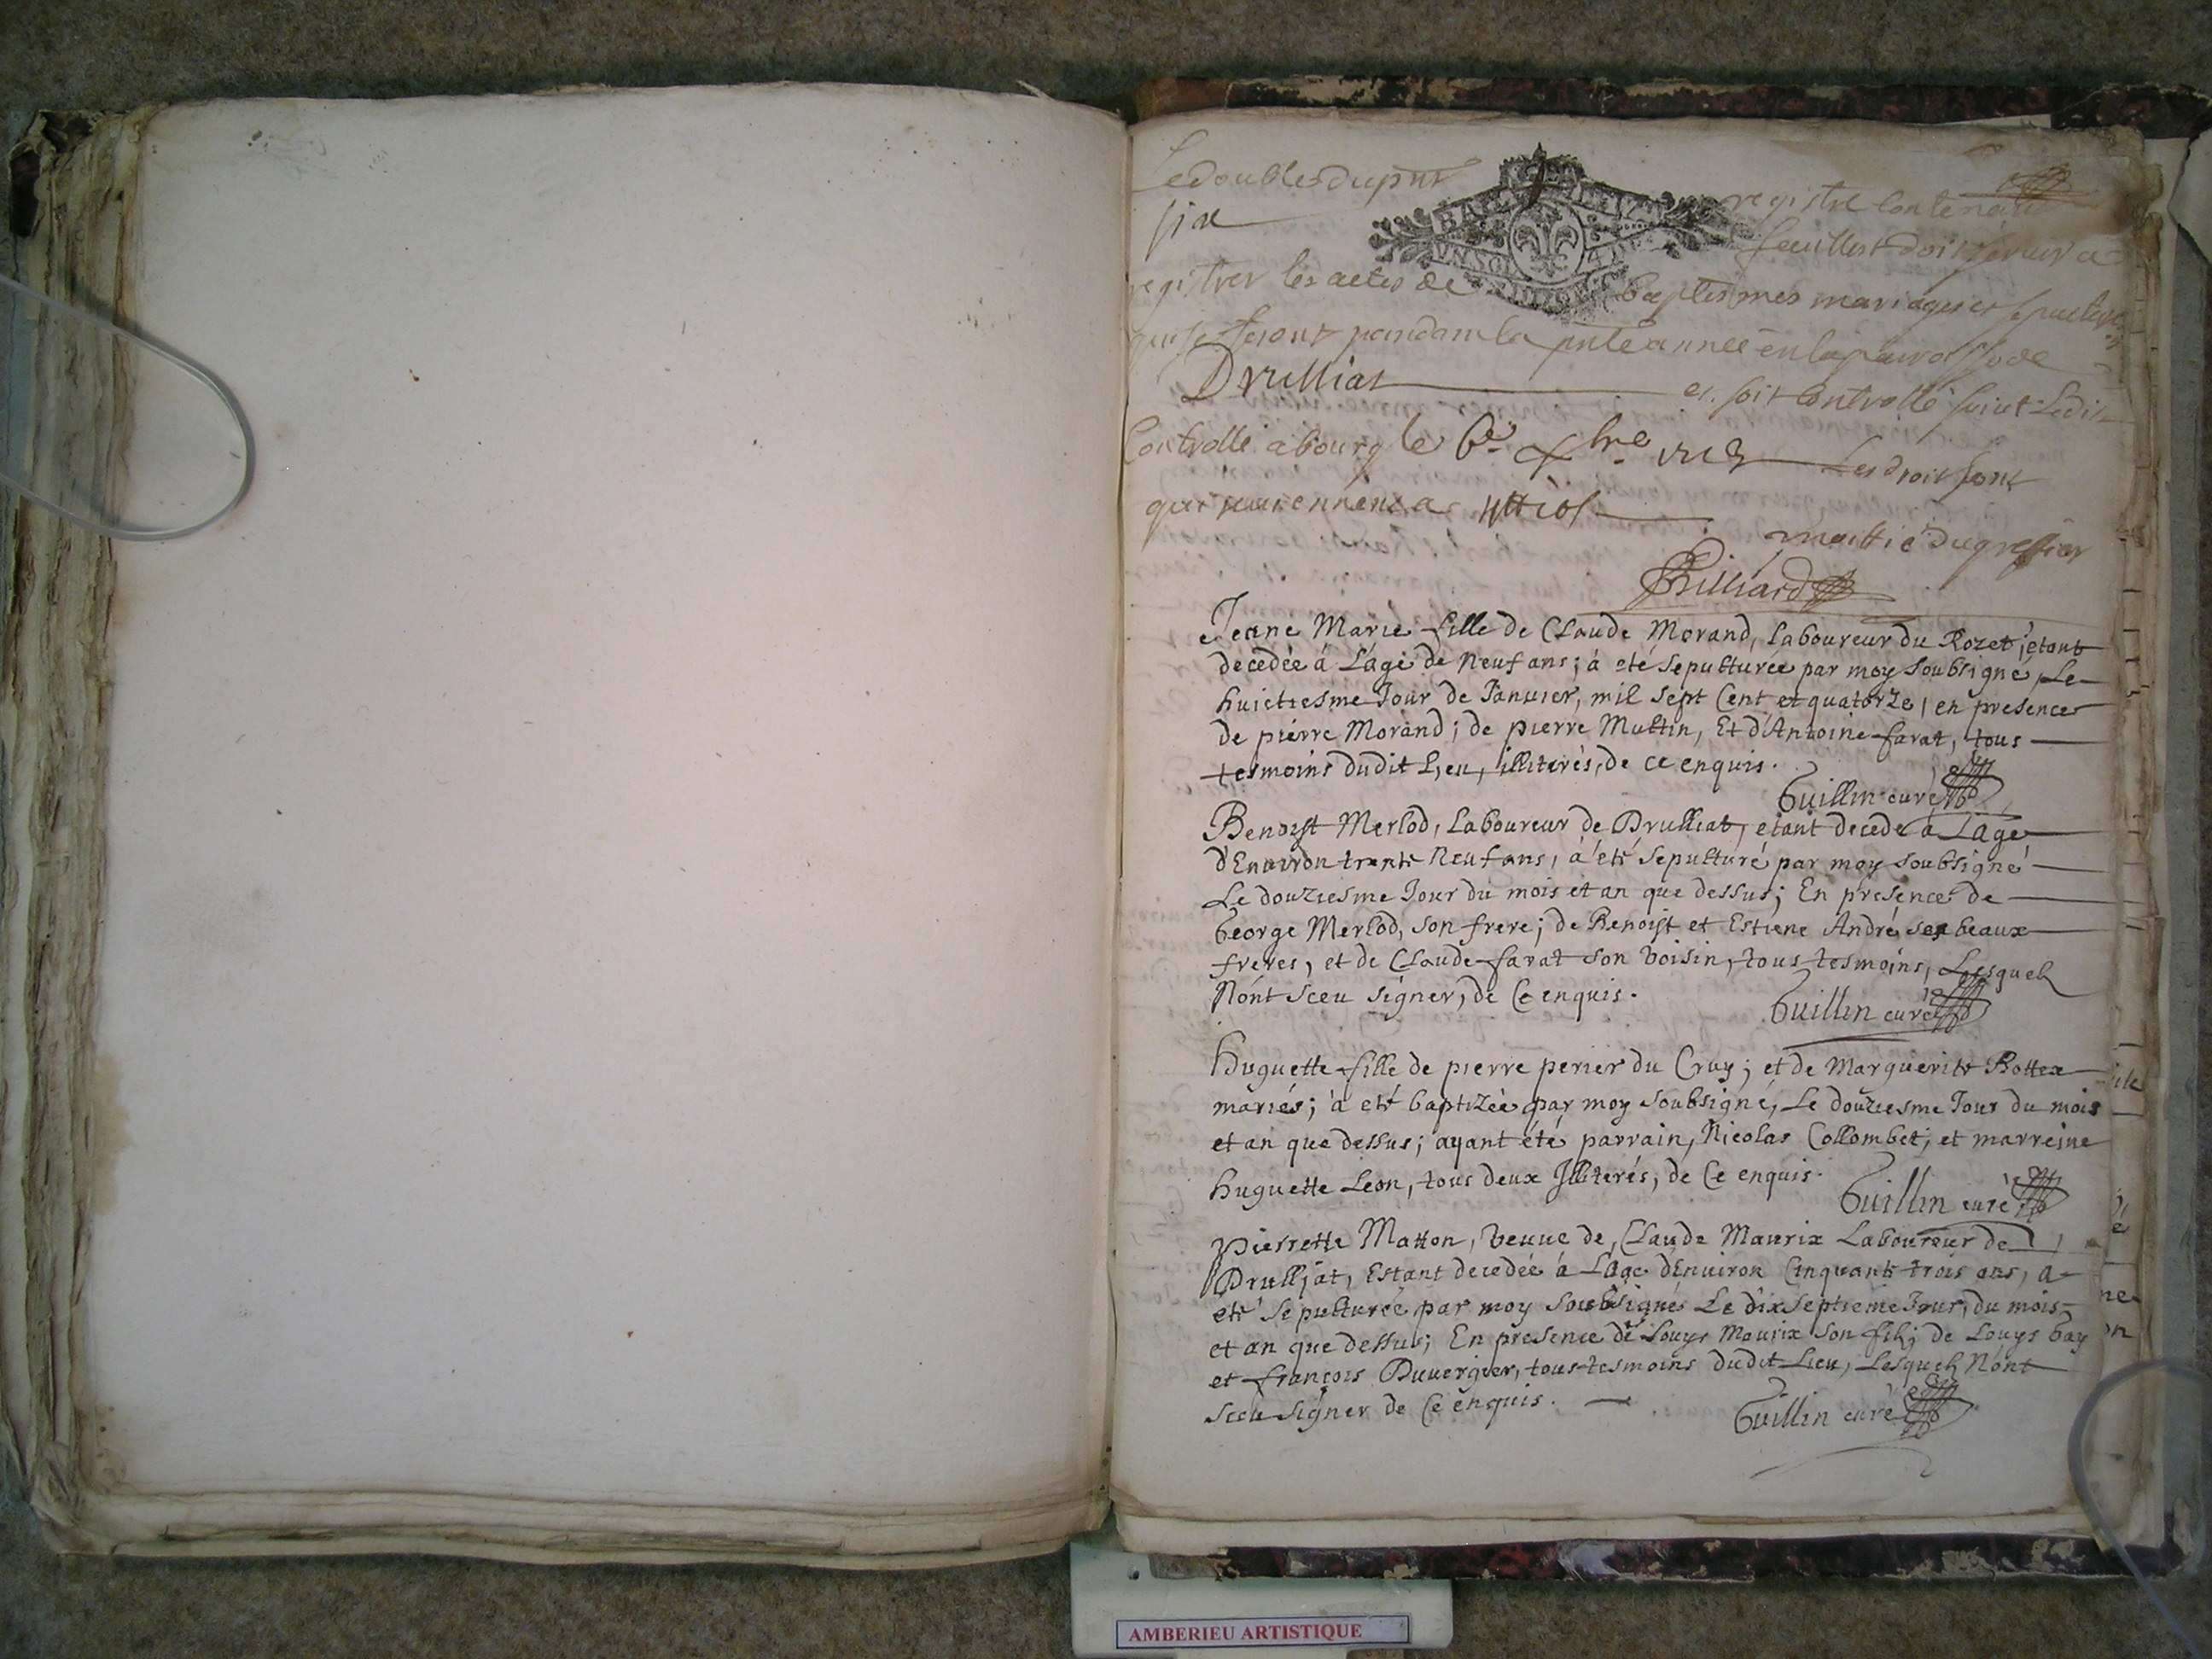 Le double du pnt registre contenant
six feuillet doit servir a
registrer les actes de baptesmes mariages et sepultures
qui se feront pendant la pnte année en la parroisse de
Drullias et soit controllé suivt Ledit
Controllé a bourg le 6e Xbre 1713 Les droit sont
moittié du greffier
Billiard
Jeane Marie fille de Claude Morand, laboureur du Rozet; etant
decedée à L'age de Neuf ans; à eté sepulturée par moy soubsigné, Le
huictiesme Jour de Januier, mil sept Cent et quatorze, en presence
de pierre Morand; de pierre Muttin, Et d'Antoine farat, tous
tesmoins dudit Lieu, illiterés, de ce enquis.
Guillin curé
Benoist Merlod, Laboureur de Drulliat, etant decedé à L'age
d'Enuiron trente Neuf ans, à eté sepulturé par moy soubsigné
Le douziesme Jour du mois et an que dessus; En presence de
George Merlod, son frere; de Benoist et Estiene André ses beaux
freres, et de Claude farat son voisin, tous tesmoins, Lesquels
N'ont sceu signer, de Ce enquis.
Guillin curé
Huguette fille de pierre perier du Cruy; et de Marguerite Rottex
mariés; à eté baptizée par moy soubsigné, Le douziesme Jour du mois
et an que dessus; ayant été parrain, Nicolas Collombet; et marreine
Huguette Leon, tous deux Illiterés, de Ce enquis.
Guillin curé
Pierrette Matton, veuue de Claude Maurix Laboureur de
Drulljat, Estant decedée à L'age d'Enuiron Cinquante trois ans, a
eté sepulturée par moy soubsigné Le dix septieme Jour, du mois
et an que dessus; En presence de Louys Maurix son fils; de Louys bay
et françois Duuergier, tous tesmoins dudit Lieu, Lesquels N'ont
sceu signer de Ce enquis.
Guillin curé
AMBERIEU ARTISTIQUE